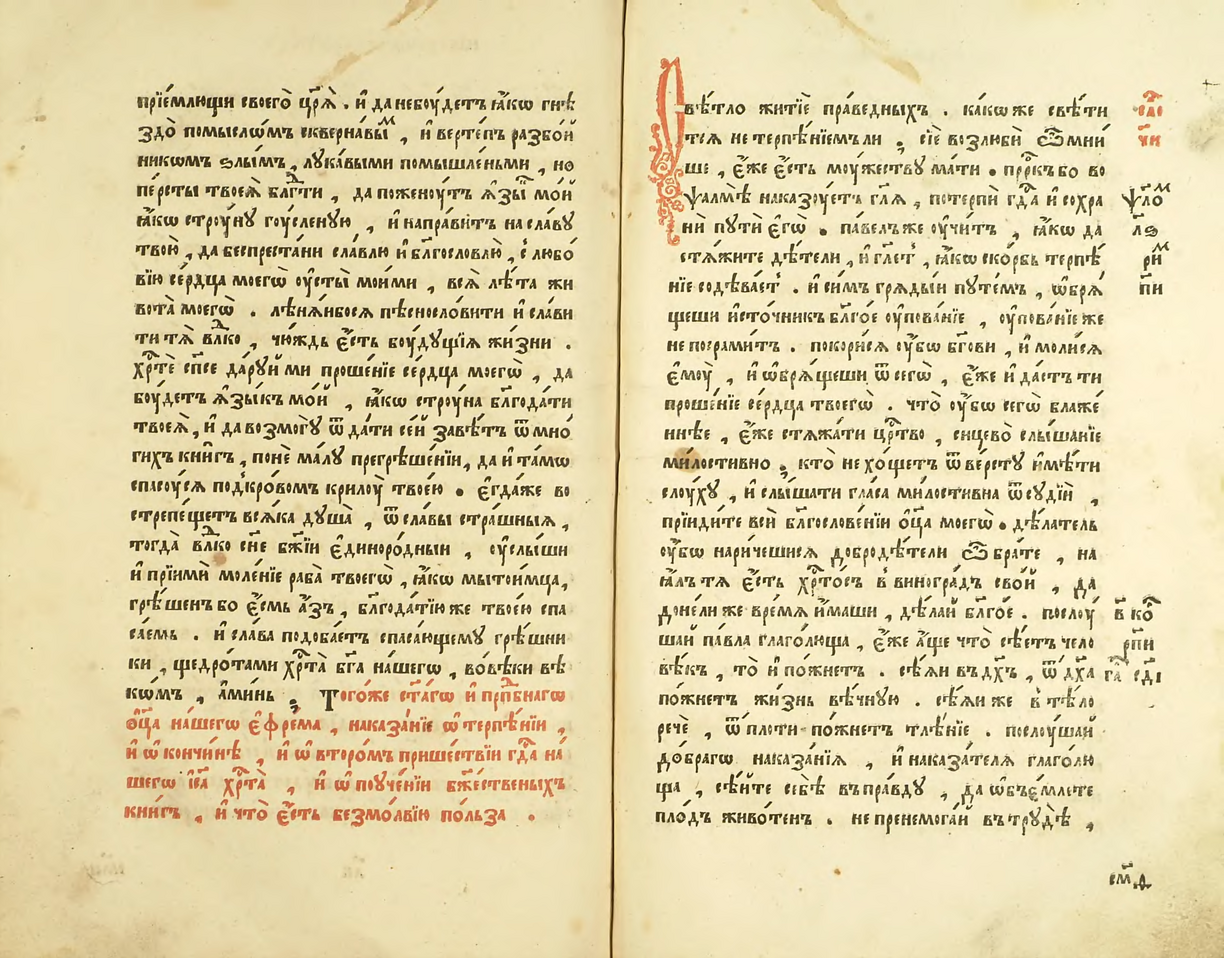 прїе́млющи своего̀ цр҃ѧ̀ . и҆ да небꙋ́детъ ꙗ҆́кѡ гнѣ
здо̀ помысло́мъ сквернавы́м , и҆ верте́пъ разбо́й
никѡмъ ѕлы́мъ , лꙋка́выми помышле́ньми , но
пе́рсты твоеѧ̀ блг҃ти , да поженꙋ́тъ ѧ҆зы́ мо́й
ꙗ҆́кѡ стрꙋ́нꙋ гꙋ́сленꙋю , и҆ напра́витъ на сла́вꙋ
твою̀ , да беспреста́ни сла́влю и҆ блгⷭ҇овлю̀ , с любо́
вїю се́рдца моегѡ̀ ᲂу҆сты̀ мои́ми , всѧ̀ лѣ́та жи
вота̀ моегѡ̀ . лѣнѧ́йбосѧ пѣснослови́ти и҆ сла́ви
ти тѧ̀ влⷣко , чю́ждь є҆́сть бꙋ́дꙋщїѧ жи́зни .
хрⷭ҇тѐ сп҃се да́рꙋй ми проше́нїе се́рдца моегѡ̀ , да
бꙋ́детъ ѧ҆зы́къ мо́й , ꙗ҆́кѡ стрꙋна̀ блг҃ода́ти
твоеѧ̀ , и҆ да возмогꙋ̀ ѿ да́ти се́й завѣ́тъ ѿ мно́
гихъ кни́гъ , понѐ ма́лꙋ прегрѣше́нїи , да и҆ та́мѡ
спасꙋ́сѧ под кро́вомъ крилꙋ̀ твое́ю . є҆гда́же во
стрепе́щетъ всѧ́ка дꙋша̀ , ѿ сла́вы стра́шныѧ ,
тогда̀ влⷣко сн҃е бж҃їи є҆диноро́дныи , ᲂу҆слы́ши
и҆ прїимѝ моле́нїе раба̀ твоегѡ̀ , ꙗ҆́кѡ мыто́имца ,
грѣ́шенъ бо є҆́смь а҆́зъ , блг҃ода́тїю же твое́ю спа
са́емь . и҆ сла́ва подоба́етъ спаса́ющемꙋ грѣ́шни
ки , щедро́тами хрⷭ҇та̀ бг҃а на́шегѡ , во́вѣки вѣ
ко́мъ , а҆ми́нь ⁏ Тогѡ́же ст҃а́гѡ и҆ прпⷣбнагѡ
ѻ҆ц҃а на́шегѡ є҆фре́ма , наказа́нїе ѡ҆ терпѣ́нїи ,
и҆ ѡ҆ кончи́нѣ , и҆ ѡ҆ второ́мъ прише́ствїи гдⷭ҇а на
шегѡ і҆с҃а хрⷭ҇та̀ , и҆ ѡ҆ поꙋче́нїи бж҃е́ственыхъ
кни́гъ , и҆ что̀ є҆́сть безмо́лвїю по́льза .
вѣ́тло житїѐ пра́ведныхъ . ка́кѡже свѣ́ти
тсѧ не терпѣ́нїемъ ли ⁏ сїѐ возлюбѝ ѽ мни́
ше , є҆́же є҆́сть мꙋ́жествꙋ ма́ти . прⷪ҇ркъ бо во
ѱалмѣ̀ наказꙋ́етъ гл҃ѧ , потерпѝ гдⷭ҇а и҆ сохра
нѝ пꙋти̑ є҆гѡ̀ . па́велъже ᲂу҆чи́тъ , ꙗ҆́кѡ да
стѧ́жите дѣ́тели , и҆ гл҃етъ , ꙗ҆́кѡ ско́рбь терпѣ́
нїе содѣ́ваетъ . и҆ си́мъ грѧды́и пꙋте́мъ , ѡ҆брѧ́
щеши и҆сто́чникъ блг҃о́е ᲂу҆пова́нїе , ᲂу҆пова́нїе же
не посрами́тъ . покори́сѧ ᲂу҆́бѡ бг҃ови , и҆ моли́сѧ
є҆мꙋ̀ , и҆ ѡ҆брѧ́щеши ѿ сегѡ̀ , є҆́же и҆ да́стъ ти
проше́нїе се́рдца твоегѡ̀ . что̀ ᲂу҆́бѡ сегѡ̀ блаже́
ннѣе , є҆́же стѧжа́ти црⷭ҇тво , сицево̀ слы́шанїе
ми́лостивно ⁏ кто̀ не хо́щетъ ѿ ве́рстꙋ и҆мѣ́ти
слꙋ́хꙋ , и҆ слы́шати гла́са ми́лостивна ѿ сꙋдїѝ ,
прїиди́те всѝ блг҃ослове́нїи ѻ҆ц҃а моегѡ̀ . дѣ́латель
ᲂу҆́бѡ нарече́шисѧ добродѣ́тели ѽ бра́те , на
ꙗ҆́лъ тѧ є҆́сть хрⷭ҇то́съ в виногра́дъ сво́й , да
до́нели же вре́мѧ и҆́маши , дѣ́лай блг҃о́е . послꙋ́
шай па́вла глаго́люща , є҆́же а҆́ще что̀ сѣ́етъ чело
вѣ́къ , то̀ и҆ по́жнетъ . сѣ́ѧи въ дх҃ъ , ѿ дх҃а
по́жнетъ жи́знь вѣ́чнꙋю . сѣ́ѧи же в тѣ́ло
речѐ , ѿ пло́ти по́жнетъ тлѣ́нїе . послꙋ́шай
до́брагѡ наказа́нїѧ , и҆ наказа́телѧ глаго́лю
ща , сѣ́ите себѣ̀ въ пра́вдꙋ , да ѡ҆бъе́млете
пло́дъ живо́тенъ . не пренемога́й въ трꙋдѣ̀ ,
ѱло́м
лѕ
ри́м
пи
в ко́
рпи